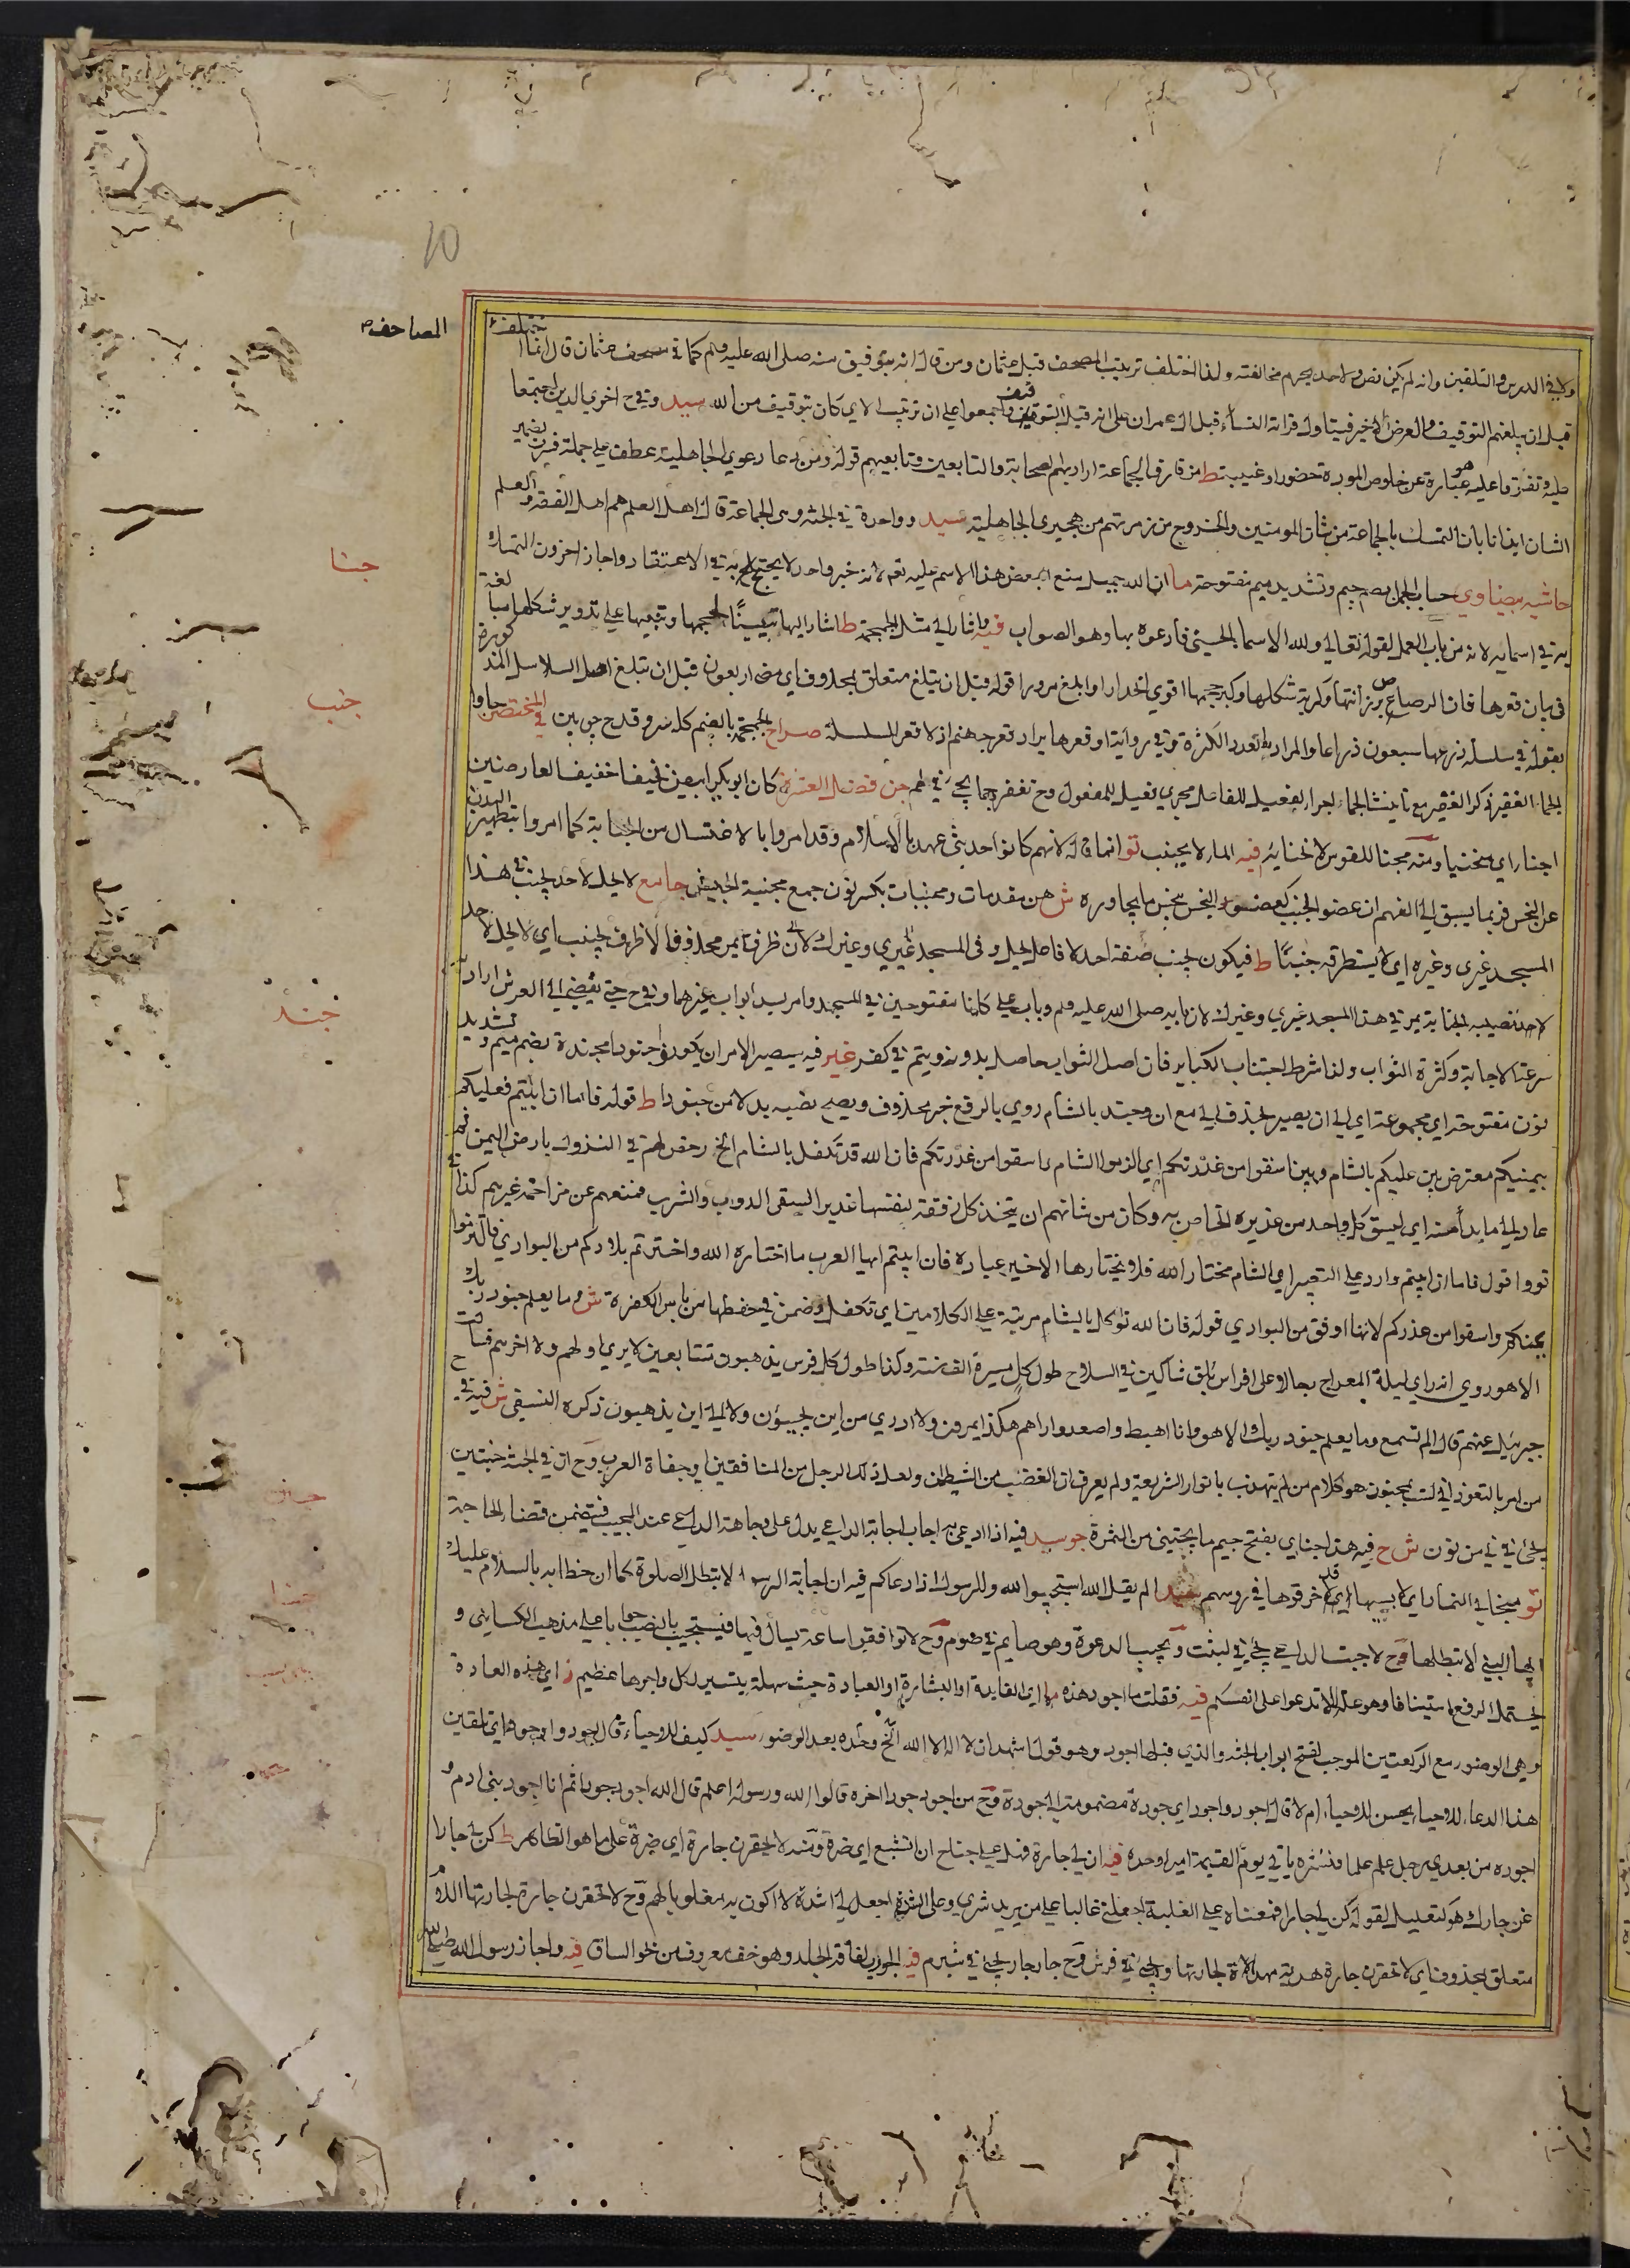 10
المصاحف
تختلف
ولا في الدرس والتلقين وانه لم يكن نص ولا حد يحرم مخالفته ولذا اختلف ترتيب المصحف قبل عثمان ومن قال انه بتوقيف منه صلى الله عليه وسلم كما في مصحف عثمان قال انما
قبل ان يبلغهم التوقيف والعرض الاخير فيتاول قراءة النساء قبل ال عمران على انه قبل التوقيف واجمعوا على ان ترتيب الاي كان بتوقيف من الله سيد وفي ح اخرى الدين اجتمعا
عليه وتفرقا عليه هو عبارة عن خلوص المودة حضورا وغيبة ط من فارق الجماعة اراد بهم الصحابة والتابعين وتابعيهم قوله ومن دعا دعوى الجاهلية عطف على جملة
الشان ايذانا بان التمسك بالجماعة من شان المومنين والخروج من زمرتهم من هجيرى الجاهلية سيد وواحدة في الجنة وهي الجماعة قال اهل العلم هم اهل الفقه والعلم
حاشيه بيضاوي حساب الجمل بضم جيم وتشديد ميم مفتوحة ما ان الله جميل منع بعض هذا الاسم عليه تعم لانه خبر واحد لا يحتج به في الاعتقاد واجاز اخرون التمسك
به في اسمايه لانه من باب العمل لقوله تعالى ولله الاسما الحسنى فادعوه بها وهو الصواب فيه واشار الى مثل الجمجمة ط اشار اليها تبيينا لحجمها وتنبيها على تدوير شكلها
في بيان قعرها فان الرصاص لرزانتها وكرية شكلها وكبر حجمها اقوى انحدارا وابلغ مرورا قوله قبل ان يبلغ متعلق بمحذوف اي مضى اربعون قبل ان تبلغ اصل السلاسل
بقوله في سلسلة ذرعها سبعون ذراعا والمراد بالعدد الكثرة وفي رواية او قعرها يراد قعر جهنم اذ لا قعر للسلسلة صراح الجمجمة بالضم كله سر وقدح چوبين في المختصر جاوا
الجماء الغفير ذكر الغفير مع تانيث الجماء اجراء لفعيل للفاعل مجرى فعيل للمفعول وح تغفر جما يجئ في لم جن فضل العشرة كان ابو بكر ابيض نحيفا خفيف العارضين
اجنا اي منحنيا ومنه مجنا للقوس لانحنايه فيه الماء لا يجنب تو انما قاله لانهم كانوا حديثي عهد بالاسلام وقد امروا بالاغتسال من الجنابة كما امروا بتطهير البدن
عن النجس فربما يسبق الى الفهم ان عضو الجنب كعضو النجس ينجس ما يجاوره ش هن مقدمات ومجنبات بكسر نون جمع مجنبة الجيش جامع لا يحل لاحد يجنب في هذا
المسجد غيري وغيره اي لا يستطرقه جنبا ط فيكون يجنب صفة احد لا فاعل يحل وفي المسجد غيري وغيرك الان ظرف يمر محذوفا لا ظرف يجنب اي لا يحل لاحد
لاحد تصيبه الجنابة يمر في هذا المسجد غيري وغيرك لان بابه صلى الله عليه وسلم وباب علي كانا مفتوحين في المسجد وامر بسد ابواب غيرهما وفي ح حتى يفضي الى العرش اراد
سرعة الاجابة وكثرة الثواب ولذا شرط اجتناب الكباير فان اصل الثواب حاصل بدونه ويتم في كفر غير فيه سيصير الامر ان يكونوا جنودا مجندة بضم ميم وتشديد
نون مفتوحة اي مجموعة اي الى ان يصير فحذف الى مع ان وجند بالشام روي بالرفع خبر محذوف ويصح نصبه بدلا من جنودا ط قوله فاما ان ابيتم فعليكم
بيمنيكم معترض بين عليكم بالشام وبين اسقوا من غدركم اي الزموا الشام واسقوا من غدرتكم فان الله قد تكفل بالشام الخ رخص لهم في النزول بارض اليمن ثم
عاد الى ما بدأ منه اي ليسق كل واحد من غديره الخاص به وكان من شانهم ان يتخذ كل رفقة لنفسها غديرا لسقي الدواب والشرب فمنعهم عن مزاحمة غيرهم كذا في
تو واقول فاما ان ابيتم وارد على التعيير اي الشام مختار الله فلا يختارها الا خير عباده فان ابيتم ايها العرب ما اختاره الله واخترتم بلادكم من البوادي فالتزموا
يمنكم واسقوا من غدركم لانها اوفق من البوادي قوله فان الله توكل بالشام مرتبة على الكلامين اي تكفل وضمن في حفظها من باس الكفرة ش وما يعلم جنود ربك
الا هو روي انه راى ليلة المعراج رجالا على افراس بلق شاكين في السلاح طول كل مسيرة الف سنة وكذا طول كل فرس يذهبون متتابعين لا يرى اولهم ولا اخرهم
جبرئيل عنهم قال الم تسمع وما يعلم جنود ربك الا هو وانا اهبط واصعد واراهم هكذا يمرون ولا ادري من اين يجيؤن ولا الى اين يذهبون ذكره النسفي ش فيه في
من امر بالتعوذ اني لست بمجنون هو كلام من لم يتهذب بانوار الشريعة ولم يعرف ان الغضب من الشيطان ولعل ذلك الرجل من المنافقين او جفاة العرب وح ان في الجنة جنتين
يجئ في في من نون ش ح فيه هذا جناي بفتح جيم ما يجتنى من الثمرة جو سيد فيه اذا دعي به اجاب اجابة الداعي يدل على وجاهة الداعي عند المجيب فيتضمن قضاء الحاجة
تو مجتابي النمار اي لابسيها اي قد خرقوها في روسهم سيد الم يقل الله استجيبوا لله وللرسول اذا دعاكم فيه ان اجابة الرسول لا تبطل الصلوة كما ان خطابه بالسلام عليك
ايها النبي لا تبطلها وح لاجبت الداعي يجئ في لبثت ويجيب الدعوة وهو صايم في صوم وح لا توافقوا ساعة يسال فيها فيستجيب بالنصب جوابا على مذهب الكسايي و
يحتمل الرفع استينافا وهو علة لا تدعوا على انفسكم فيه فقلت ما اجود هذه ما اي الفايدة او البشارة او العبادة حيث سهلة يتيسر لكل واجرها عظيم ز اي هذه العادة
وهي الوضوء مع الركعتين الموجب لفتح ابواب الجنة والذي قبلها اجود وهو قول اشهد ان لا اله الا الله الخ وحده بعد الوضوء سيد كيف للاحياء قال اجود واجود اي تلقين
هذا الدعاء للاحياء يحسن للاحياء ام لا قال اجود واجود اي جودة مضمومة الى جودة وح من اجود جودا اخره قالوا الله ورسوله اعلم قال الله اجود جودا ثم انا اجود بني ادم و
اجوده من بعدي رجل علم علما فنشره ياتي يوم القيمة اميرا وحده فيه ان لي جارة فهل علي جناح ان اتشبع اي ضرة ومنه لا تحقرن جارة اي ضرة على ما هو الظاهر ط كن لي جارا
عز جارك هو كتعليل لقوله كن لي جارا فمعناه على الغلبة اجعلني غالبا على من يريد شري وعلى الشدة اجعل لي شدة لا اكون به مغلوبا لهم وح لا تحقرن جارة لجارتها
متعلق بمحذوف اي لا تحقرن جارة هدية مهداة لجارتها ويجئ في فرش وح جار جار يجئ في شبرم فيه الجورب لفافة الجلد وهو خف معروف من نحو الساق فيه واجاز رسول الله
جنا
جنب
جند